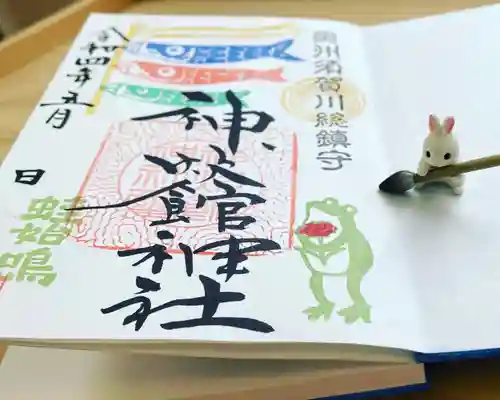 奥州須賀川総鎮守
神炊館神社
令和四年五月
日
蛙始鳴